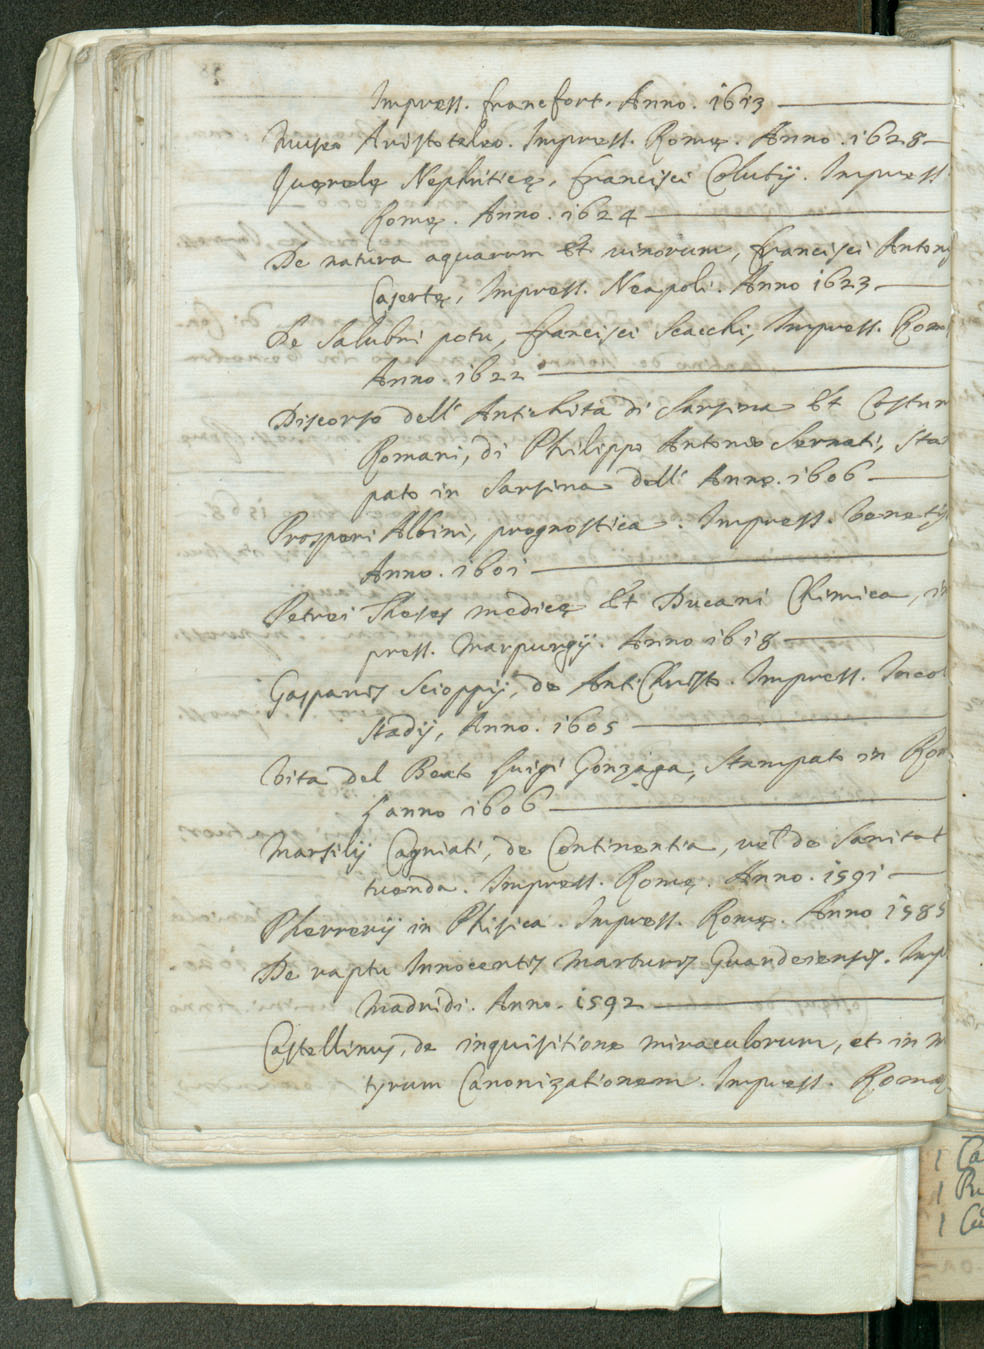 Impress. francfort. Anno. 1613
Museo Aristoteleo. Impress. Romę. Anno. 1628
Querelę Nephriticę, francisci Colutij. Impress.
Romę. Anno. 1624
De natura aquarum et uinorum, francisci Antonij
Casertę, Impress. Neapoli. Anno 1623
De Salubri potu, francisci Scacchi, Impress. Rom
Anno. 1622
Discorso dell' Antichità di Sarsina et Costum
Romani, di Philippo Antonio Sernati, Sta
pato in Sarsina dell' Anno. 1606
Prosperi Albini, prognostica. Impress. Venetijs
Anno. 1601
Petrei Theses medicę et Ducani Chimica, im
press. Marpurgij. Anno 1618
Gasparis Scioppij, de AntiChristo. Impress. Ingol
stadij, Anno. 1605
Vita del Beato Luigi Gonzaga, Stampato in Rom
L'anno 1606
Marsilij Cagniati, de Continentia, vel de Sanitat
tuenda. Impress. Romę. Anno. 1591
Pherrerij in Phisica. Impress. Romę. Anno 1585
De raptu Innocentis Marturis Guardeiensis. Imp
Madridi. Anno. 1592
Castellinus, de inquisitione miraculorum, et in M
tyrum Canonizationem. Impress. Romę
1 Ca
1
1